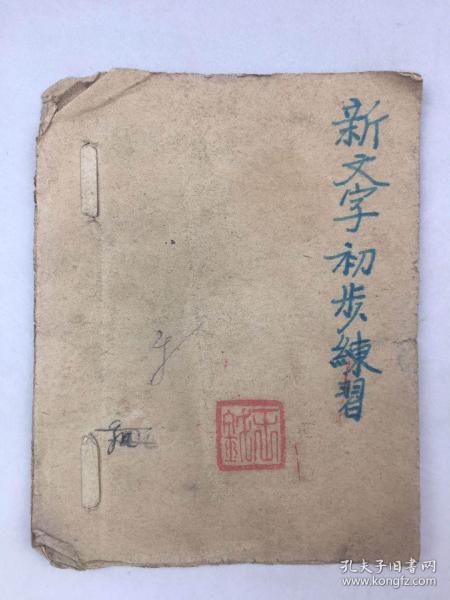 新文字初步練習
孔夫子旧书网
www.kongfz.com